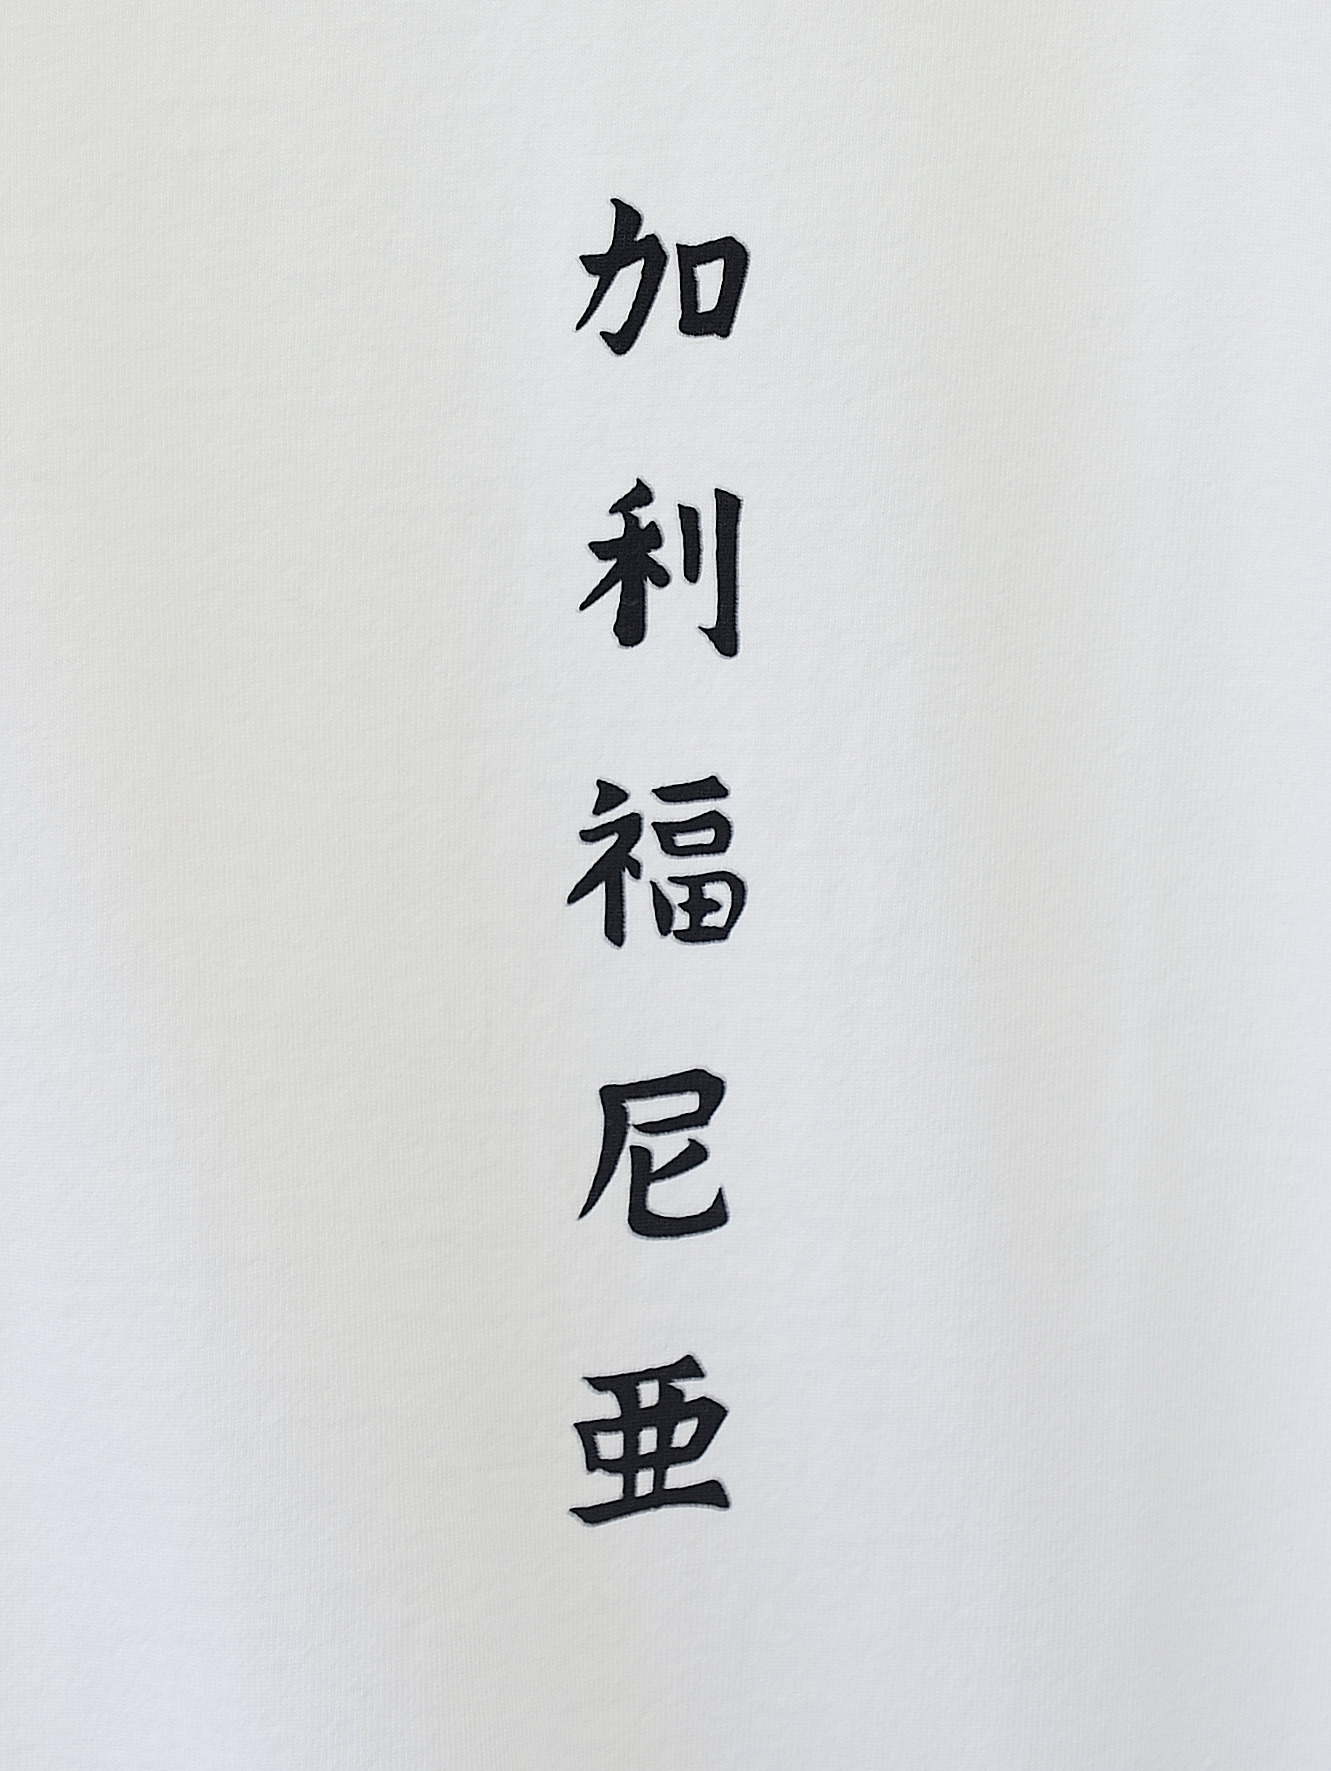 加利福尼亜